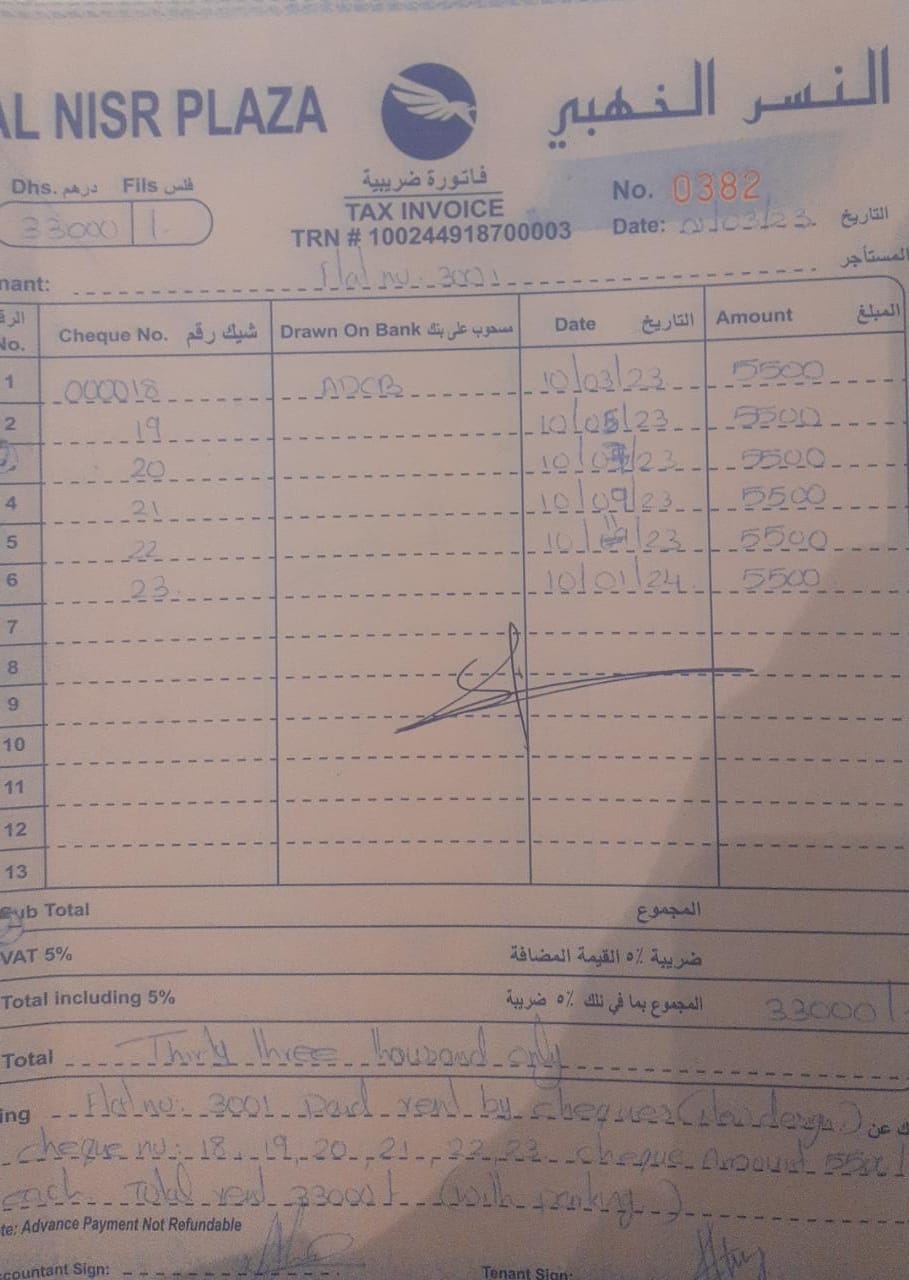 AL NISR PLAZA
النسر الخهبي
Dhs. درهم Fils فلس
33000 /.
فاتورة ضريبية
TAX INVOICE
TRN # 100244918700003
No. 0382
Date: /03/23 التاريخ
nant: Flat no. 3001 المستأجر
No. Cheque No. شيك رقم Drawn On Bank مسحوب على بنك Date التاريخ Amount المبلغ
1 000018 ADCB 10/03/23 5500
2 19 10/05/23 5500
20 10/07/23 5500
4 21 10/09/23 5500
5 22 10/11/23 5500
6 23 10/01/24 5500
7
8
9
10
11
12
13
Sub Total المجموع
VAT 5% ضريبة ٥% القيمة المضافة
Total including 5% المجموع بما في تلك ٥% ضريبة 33000/.
Total Thirty three thousand only
ing Flat no. 3001 paid rent by cheques ك عن
cheque no: 18, 19, 20, 21, 22, 23 cheque Amount 5500/
each Total rent 33000/ (with parking)
te: Advance Payment Not Refundable
ccountant Sign: Tenant Sign: